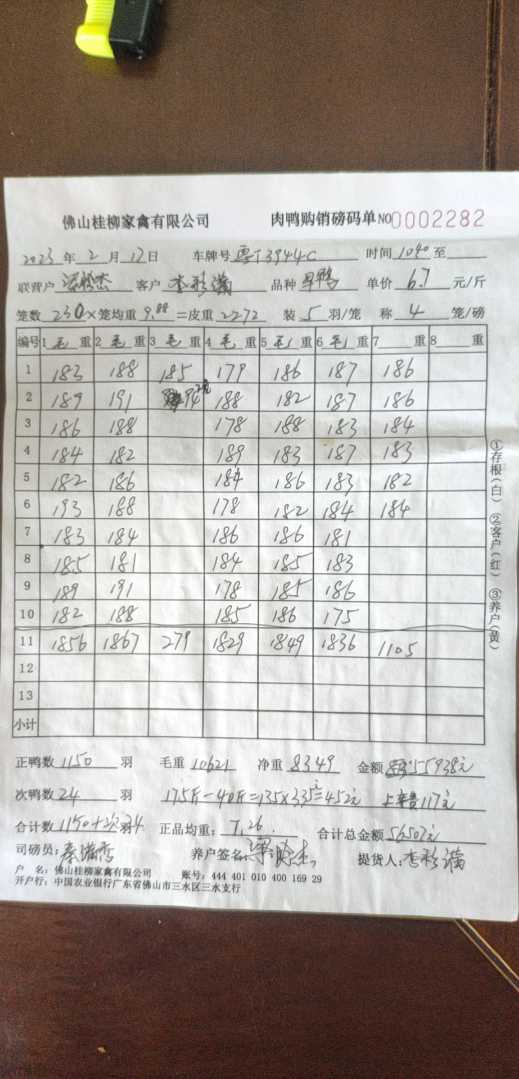 佛山桂柳家禽有限公司 肉鸭购销磅码单 NO 0002282
2023 年 2 月 17 日 车牌号 粤J3944C 时间 10 40 至
联营户 客户 李彩满 品种 母鸭 单价 6.7 元/斤
笼数 230 ×笼均重 9.88 =皮重 2272 装 5 羽/笼 称 4 笼/磅
编号 1 毛 重 2 毛 重 3 毛 重 4 毛 重 5 毛 重 6 毛 重 7 重 8 重
1 183 188 185 179 186 187 186
2 189 191 94 2笼 188 182 187 186
3 186 188 178 188 183 184
4 184 182 189 183 187 183
5 182 186 184 186 183 182
6 193 188 178 182 184 184
7 183 184 186 186 181
8 185 181 184 185 183
9 189 191 178 185 186
10 182 188 185 186 175
11 1856 1867 279 1829 1849 1836 1105
12
13
小计
正鸭数 1150 羽 毛重 10621 净重 8349 金额 55938元
次鸭数 24 羽 175斤-40斤=135×3.35元=452元 上车费117元
合计数 1150+次24 羽 正品均重: 7.26 合计总金额 56507元
司磅员: 养户签名: 提货人: 李彩满
户 名: 佛山桂柳家禽有限公司 账号: 444 401 010 400 169 29
开户行: 中国农业银行广东省佛山市三水区三水支行
①存根(白) ②客户(红) ③养户(黄)